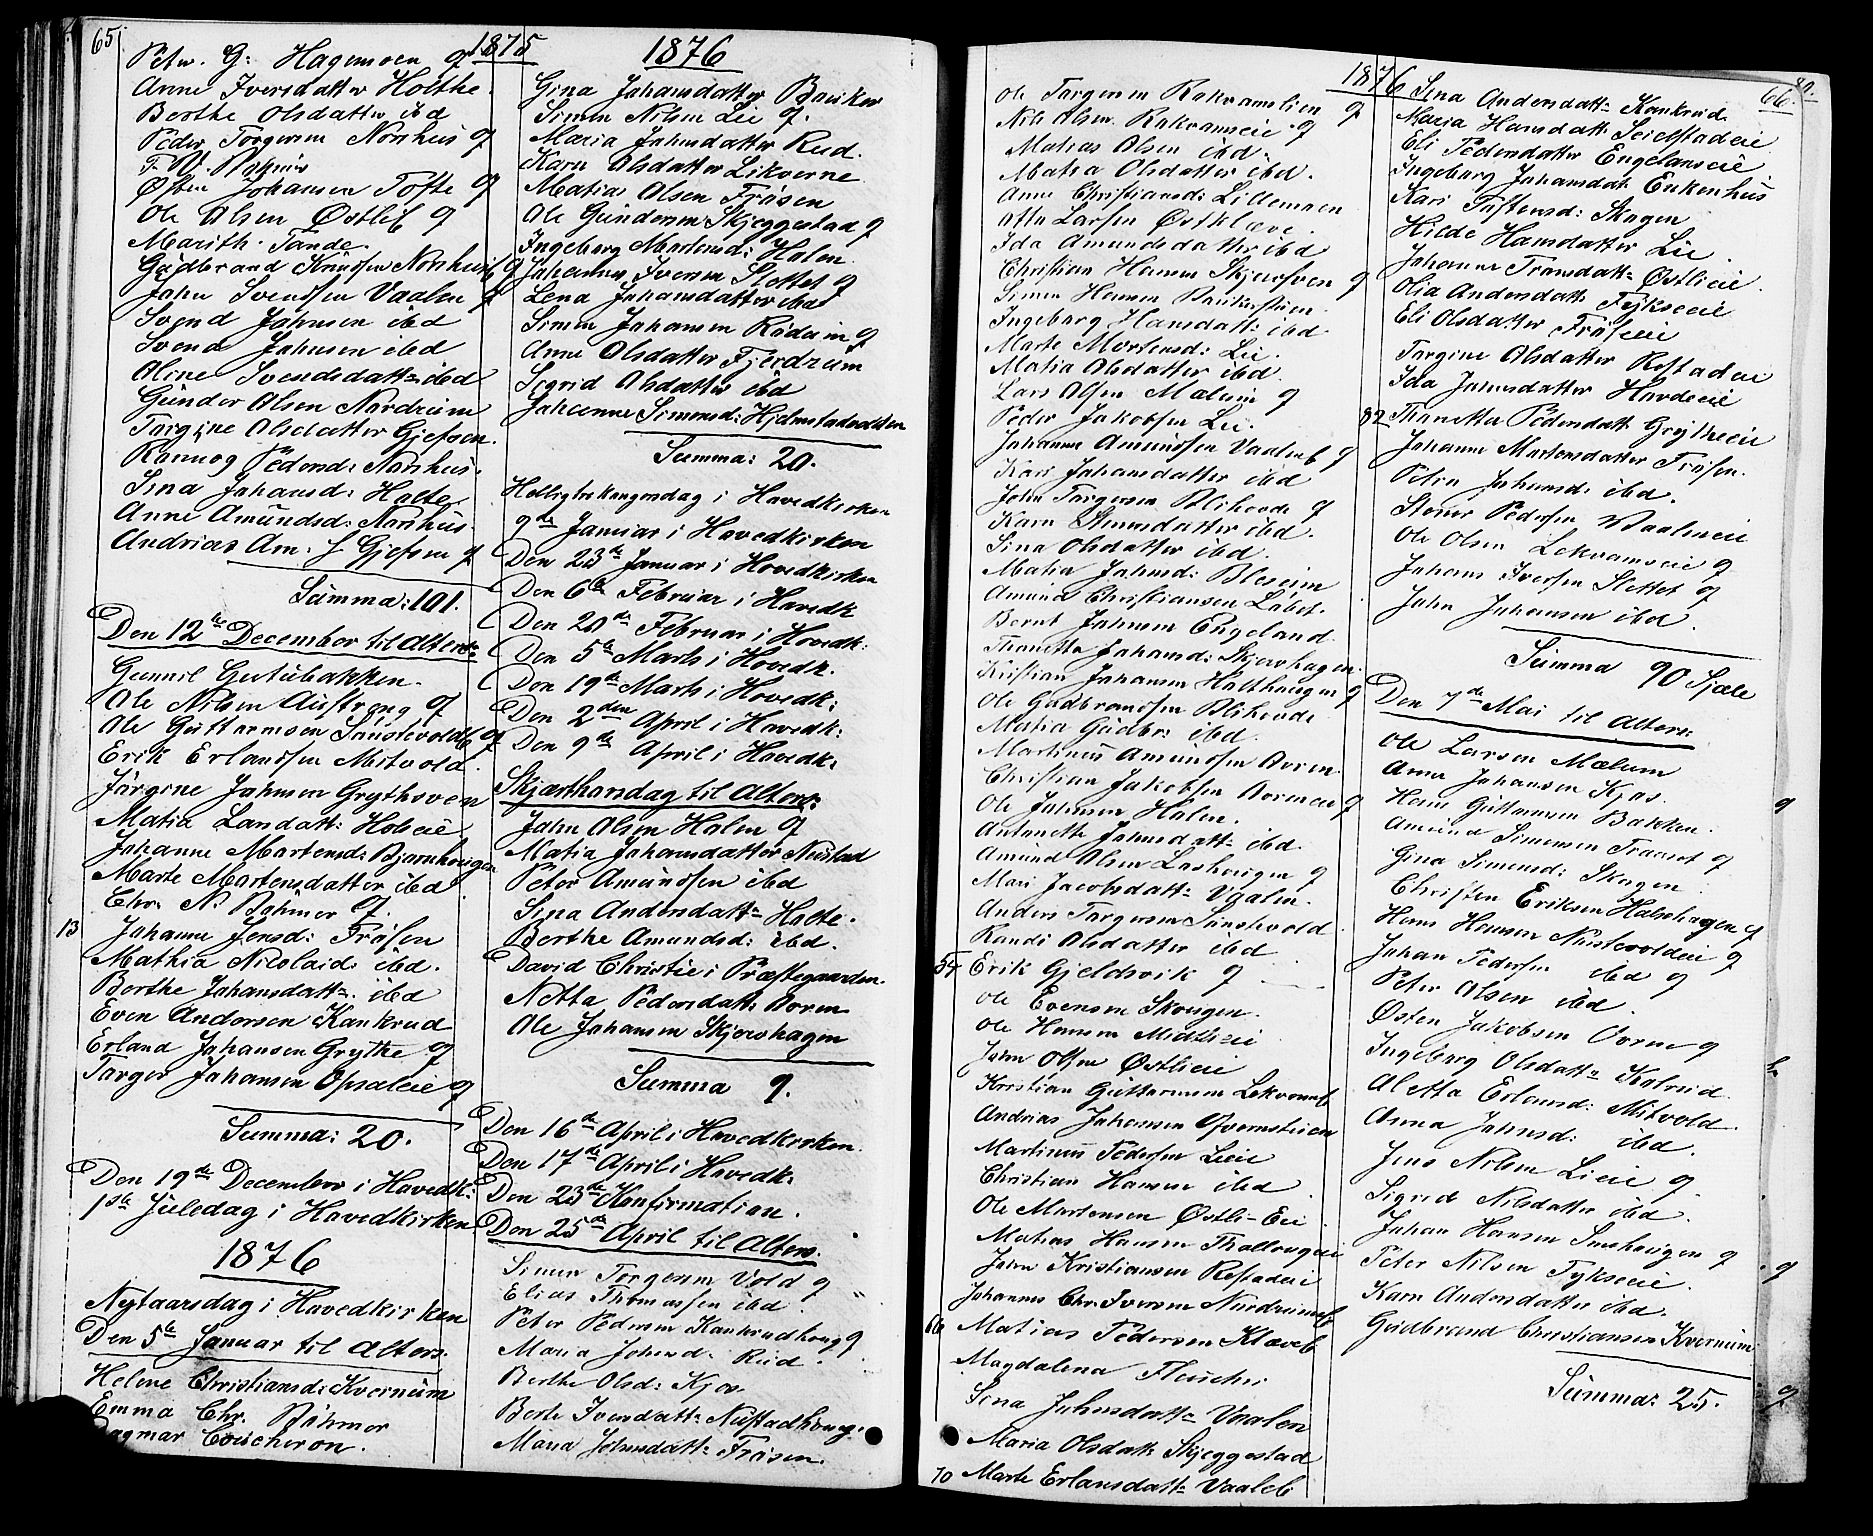 65
1875
Peter G: Hagemoen q
Anne Iversdatter Holthe
Berthe Olsdatter ibd
Peder Torgersen Norshus q
F. W.
Østen Johansen Tofte q
Ole Olsen Østlib q
Marith Tande
Gudbrand Knudsen Norshus q
John Svendsen Vaalen q
Svend Johnsen ibd
Svend Johnsen ibd
Oline Svendsdatt= ibd
Gunder Olsen Nordrum
Torgine Olsdatter Gjefsen
Rannog Pedersd: Norshus
Sina Johansd: Holte
Anne Amundsd: Norshus
Andrias Am. S Gjefsen q
Summa: 101.
Den 12te December til Alters
Gunnil Gutubakken
Ole Nilsen Austreng q
Ole Guttormsen q
Erik Erlandsen Mitvold
Jørgine Johnsen Grythsveen
Matia Larsdatt: Hobeie
Johanne Martensd: Bjørnhougen
Marte Martensdatter ibd
Chr. N. Bøhmer q
13 Johanne Jensd: Frøsen
Mathia Nicolaid: ibd.
Berthe Johansdatt: ibd
Even Andersen Kankrud
Erland Johansen Grythe q
Torger Johansen Opsaleie q
Summa: 20.
Den 19de December i Hovedk:
1ste Juledag i Hovedkirken
1876
Nytaarsdag i Hovedkirken
Den 5te Januar til Alters
Helene Christiansd: Kvernum
Emma Chr. Bøhmer
Dagmar Coucheron.
1876
Gina Johansdatter Bauker
Simen Nilsen Lie q.
Maria Johnsdatter Rud.
Karn Olsdatter Likverne
Matias Olsen Frøsen
Ole Gundersen Skjeggestad q
Ingeborg Martensd: Holen
Johannes Iversen Slettet q
Lena Johansdatter ibd
Simen Johansen q
Anne Olsdatter Fjerdrum
Sigrid Olsdatter ibd
Johanne Simensd: Hjelmstadvolden
Summa: 20.
Helligtrekongersdag i Hovedkirken
9de Januar i Hovedkirken
Den 23de Januar i Hovedkirken
Den 6te Februar i Hovedk
Den 20de Februar i Hovedk:
Den 5te Marts i Hovedk.
Den 19de Marts i Hovedk:
Den 2den April i Hovedk:
Den 9de April i Hovedk:
Skjærthorsdag til Alters:
John Olsen Holen q
Matia Johansdatter Nustad
Peter Amundsen ibd
Sina Andersdatt= Holte.
Berthe Amundsd: ibd.
David Christie i Præstegaarden
Netta Pedersdatt:
Ole Johansen Skjervhagen
Summa 9.
Den 16de April i Hovedkirken.
Den 17de April i Hovedk:
Den 23de Konfirmation.
Den 25de April til Alters.
Simen Torgersen Vold q
Elias Thomassen ibd
Peter Pedersen Kankrudhoug q
Maria Johnsd: Rud.
Berthe Olsd: Kjos
Berte Iversdatt= Nustadhoug:
Maria Johnsdatt= Frøsen.
1876
Ole Torgersen q
Nils Olsen q
Matias Olsen ibd.
Matia Olsdatter ibd.
Anne Christiansd: Lillemoen
Otto Larsen
Ida Amundsdatter ibd
Christian Hansen q
Simen Hansen
Ingeborg Hansdatt: ibd
Marte Mortensd: Lie.
Matia Olsdatter ibd.
Lars Olsen Mælum q
Peder Jakobsen Lie.
Johannes Amundsen Vaaleb q
Kari Johansdatter ibd
John Torgersen Blihovde q
Karn Simensdatter ibd.
Sina Olsdatter ibd.
Matia Johnsd: Blesium
Amund Christiansen
Bernt Johnsen Engeland
Thonetta Johansd: Skjervhagen
Kristian Johansen Holthaugen q
Ole Gudbrandsen Blihovde
Matia Gudbr: ibd
Martinus Amundsen
Christian Jakobsen q
Ole Johnsen Holen.
Antonette Johnsdatt: ibd
Amund Olsen q
Mari Jacobsdatt= Vaalen
Anders Torgersen
Randi Olsdatter ibd
54 Erik Gjeldsvik q
Ole Evensen Skougen.
Ole Hansen
John Olsen Østlieie
Kristian Guttormsen
Andrias Johansen
Martinus Pedersen Lieie
Christian Hansen ibd
Ole Martensen Østli-Eie
Matias Hansen
John Kristiansen
Johannes Chr. Iversen
66 Matias Pedersen Kløveb
Magdalena
Sina Johnsdatt= Vaalen
Maria Olsdatt: Skjeggestad
70 Marte Erlansdatt= Vaaleb
80.
66.
Sina Andersdatt= Kankrud
Maria Hansdatt:
Eli Pedersdatter Engelandseie
Ingeborg Johansdat: Enkenhus
Kari Tostensd: Skogen
Hilde Hansdatter Lie
Johanne Transdatt= Østlieie
Olia Andersdatt: Fykseeie
Eli Olsdatter Frøseie
Torgine Olsdatter
Ida Johnsdatter
82 Thonetta Pedersdatt: Grytheeie
Johanne Martensdatter Frøsen.
Petra Johansd: ibd.
Pedersen
Ole Olsen q
Johans Iversen Slettet q
John Johansen ibd.
Summa 90 Sjæle
Den 7de Mai til Alters:
Ole Larsen Mælum
Anne Johansen Kjos.
Hans Guttormsen Bakken.
Amund Simensen q
Gina Simensd: Skogen
Christen Eriksen q
Hans Hansen Nustvoldeie q
Johan Pedersen ibd q
Peter Olsen ibd.
Østen Jakobsen q
Ingeborg Olsdatt=
Aletta Erlansd: Mitvold
Anna Johnsd: ibd.
Jens Nilsen Lieie q
Sigrid Nilsdatter ibd.
Johan Hansen q
Peter Nilsen Fykseeie.
Karn Andersdatter ibd.
Gudbrand Christiansen Kvernum
Summa: 25.